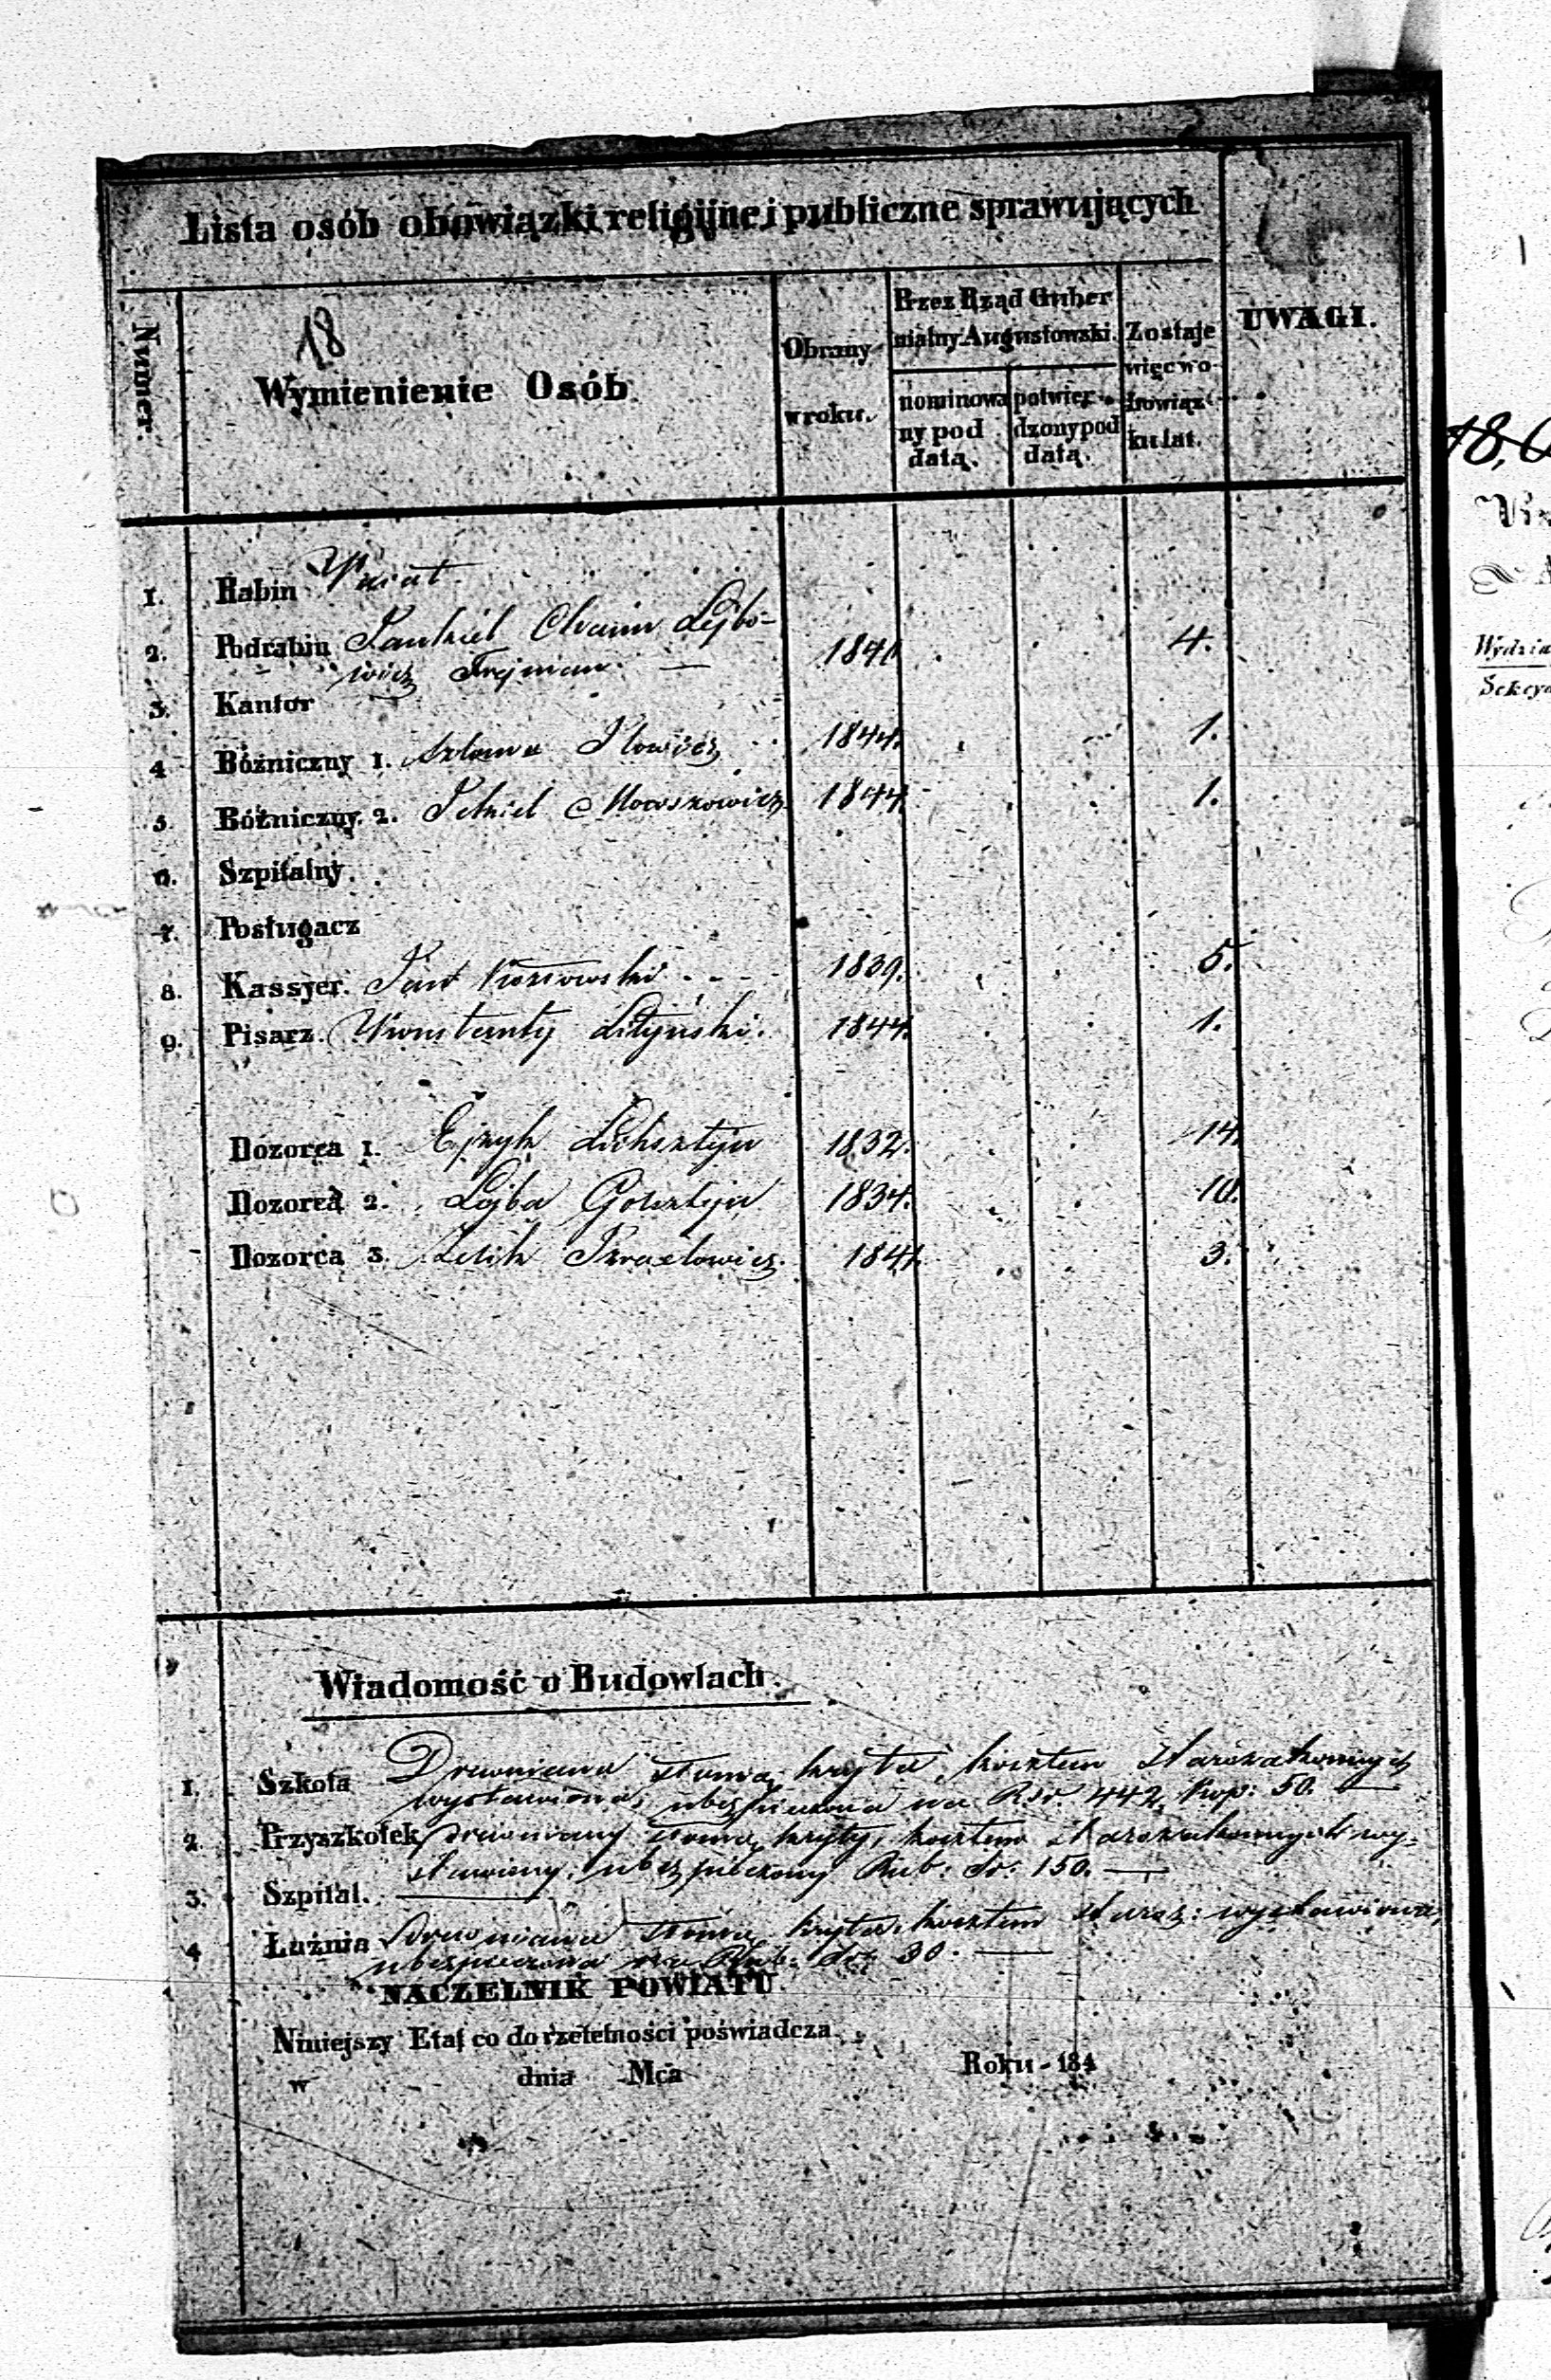 Lista osób obowiązki religijne i publiczne sprawujących
Numer.
18
Wymienienie Osób
Obrany w roku.
Przez Rząd Gubernialny Augustowski.
nominowany pod datą.
potwierdzony pod datą.
Zostaje więc w obowiązku lat.
UWAGI.
1. Rabin Wakat
2. Podrabin Jankiel Chaim Lejbo-
wicz Frejman 1841 4.
3. Kantor
4 Bóżniczny 1. Szloma Nowicz 1844. 1.
5. Bóżniczny. 2. Moroskowicz 1844. 1.
6. Szpitalny.
7. Posługacz
8. Kassyer. 1839. 5.
9. Pisarz. Konstanty 1844. 1.
Dozorca 1. Lichsztejn 1832. 14.
Dozorca 2. Lejba Golsztejn 1834. 10.
Dozorca 3. Zelik Izraelowicz. 1841. 3.
Wiadomość o Budowlach.
1. Szkoła Drewniana słomą kryta, kosztem Starozakonnych
wystawiona, ubezpieczona na Rsr. 442, kop: 50.
2. Przyszkołek drewniany słomą kryty, kosztem Starozakonnych wy-
stawiony, ubezpieczony Rub. Sr. 150.
3. Szpital.
4 Łaźnia drewniana słomą kryta, kosztem Staroz: wystawiona,
ubezpieczona na Rub: Sr: 30.
NACZELNIK POWIATU
Niniejszy Etat co do rzetelności poświadcza.
w dnia Mca Roku 184